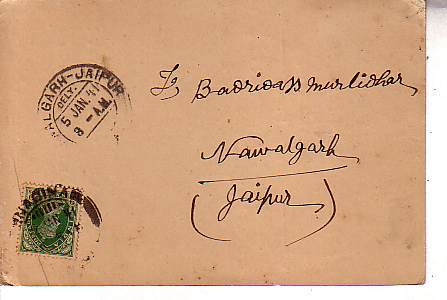 NAWALGARH-JAIPUR
DELY.
5 JAN. 41
8-A.M.
To Badridass Murlidhar
Nawalgarh
(Jaipur)